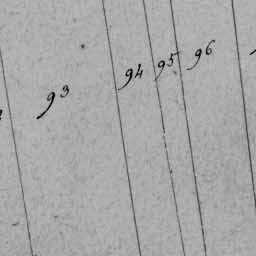 93 94 95 96